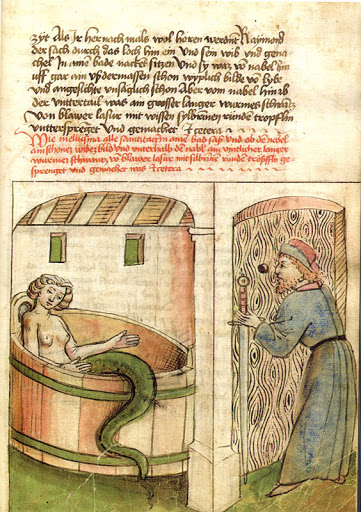 zyt Als Ir her nach mals wol horen werdent Raymond
der sach durch das loch hin ein Und sen wib und gena
chel In ame bade nacket sitzen Und sy waz vo nabel Im
uff gar ain usdermassen schon wyplich bilde vo lybe
und angesichte unsaglich schon Aber vom nabel hin ab
der undertail was ain grosser langer wurmes schwantz
Von blawer lasure mit wissen sylbrinen runde tropflin
undersprenget Und gemachet Et cetera
Wie mellusina alle samstag in ame bad sasz und ob de nabel
ain schones wibes bild und unterhalb de nabl ain langer
wurmes schwantz vo blawer lasur mit silbrine runde tropfflin ge
sprenget und gemachet was Et cetera